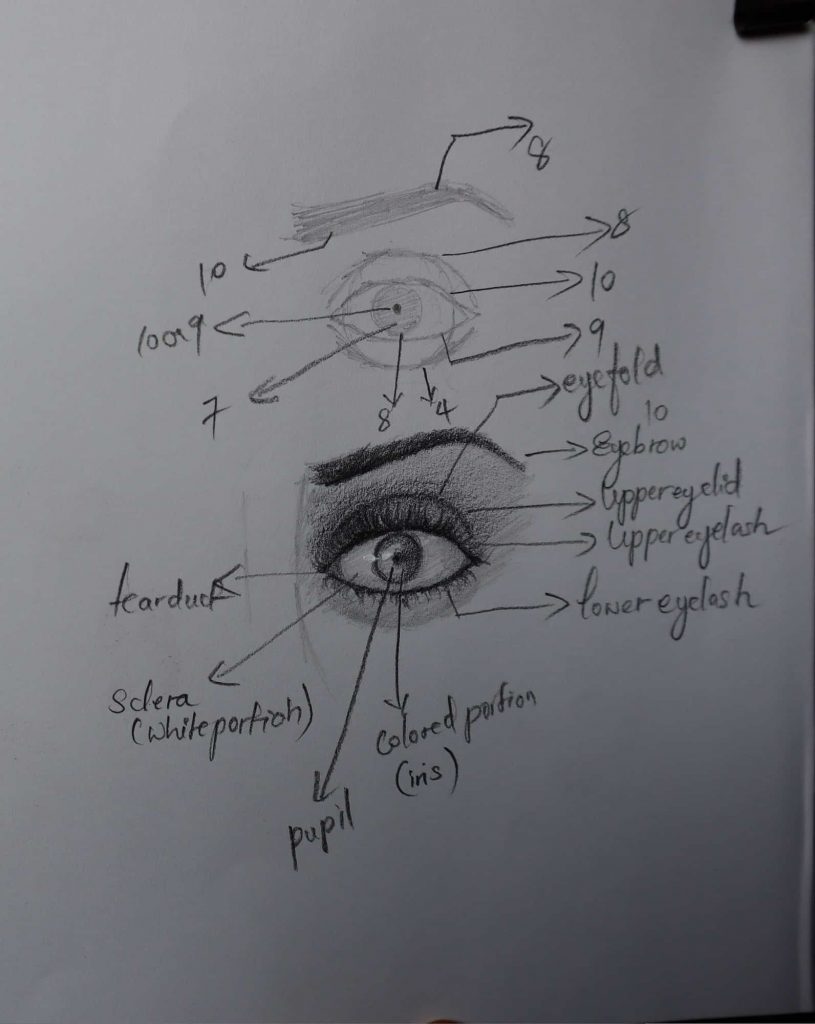 8
8
10
10
10 or 9
9
7
8
4
eyefold
10
Eyebrow
Upper eyelid
Upper eyelash
tearduct
lower eyelash
Sclera
(white portion)
Colored portion
(iris)
pupil